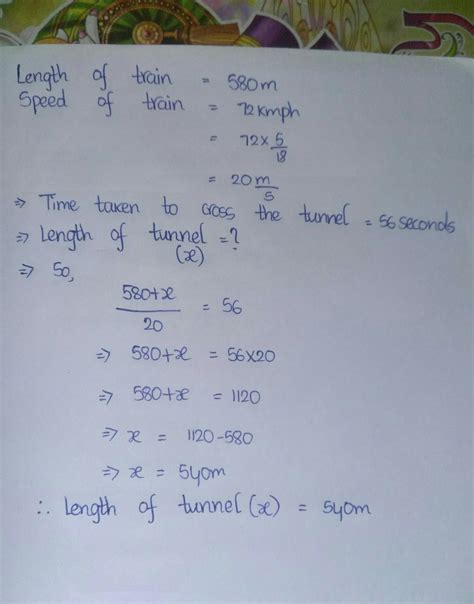 Length of train = 580m
Speed of train = 72 Kmph
= 72 × 5/18
= 20 m/s
⇒ Time taken to cross the tunnel = 56 seconds
⇒ Length of tunnel = ?
(x)
⇒ So,
580+x/20 = 56
⇒ 580+x = 56×20
⇒ 580+x = 1120
⇒ x = 1120-580
⇒ x = 540m
∴ Length of tunnel (x) = 540m